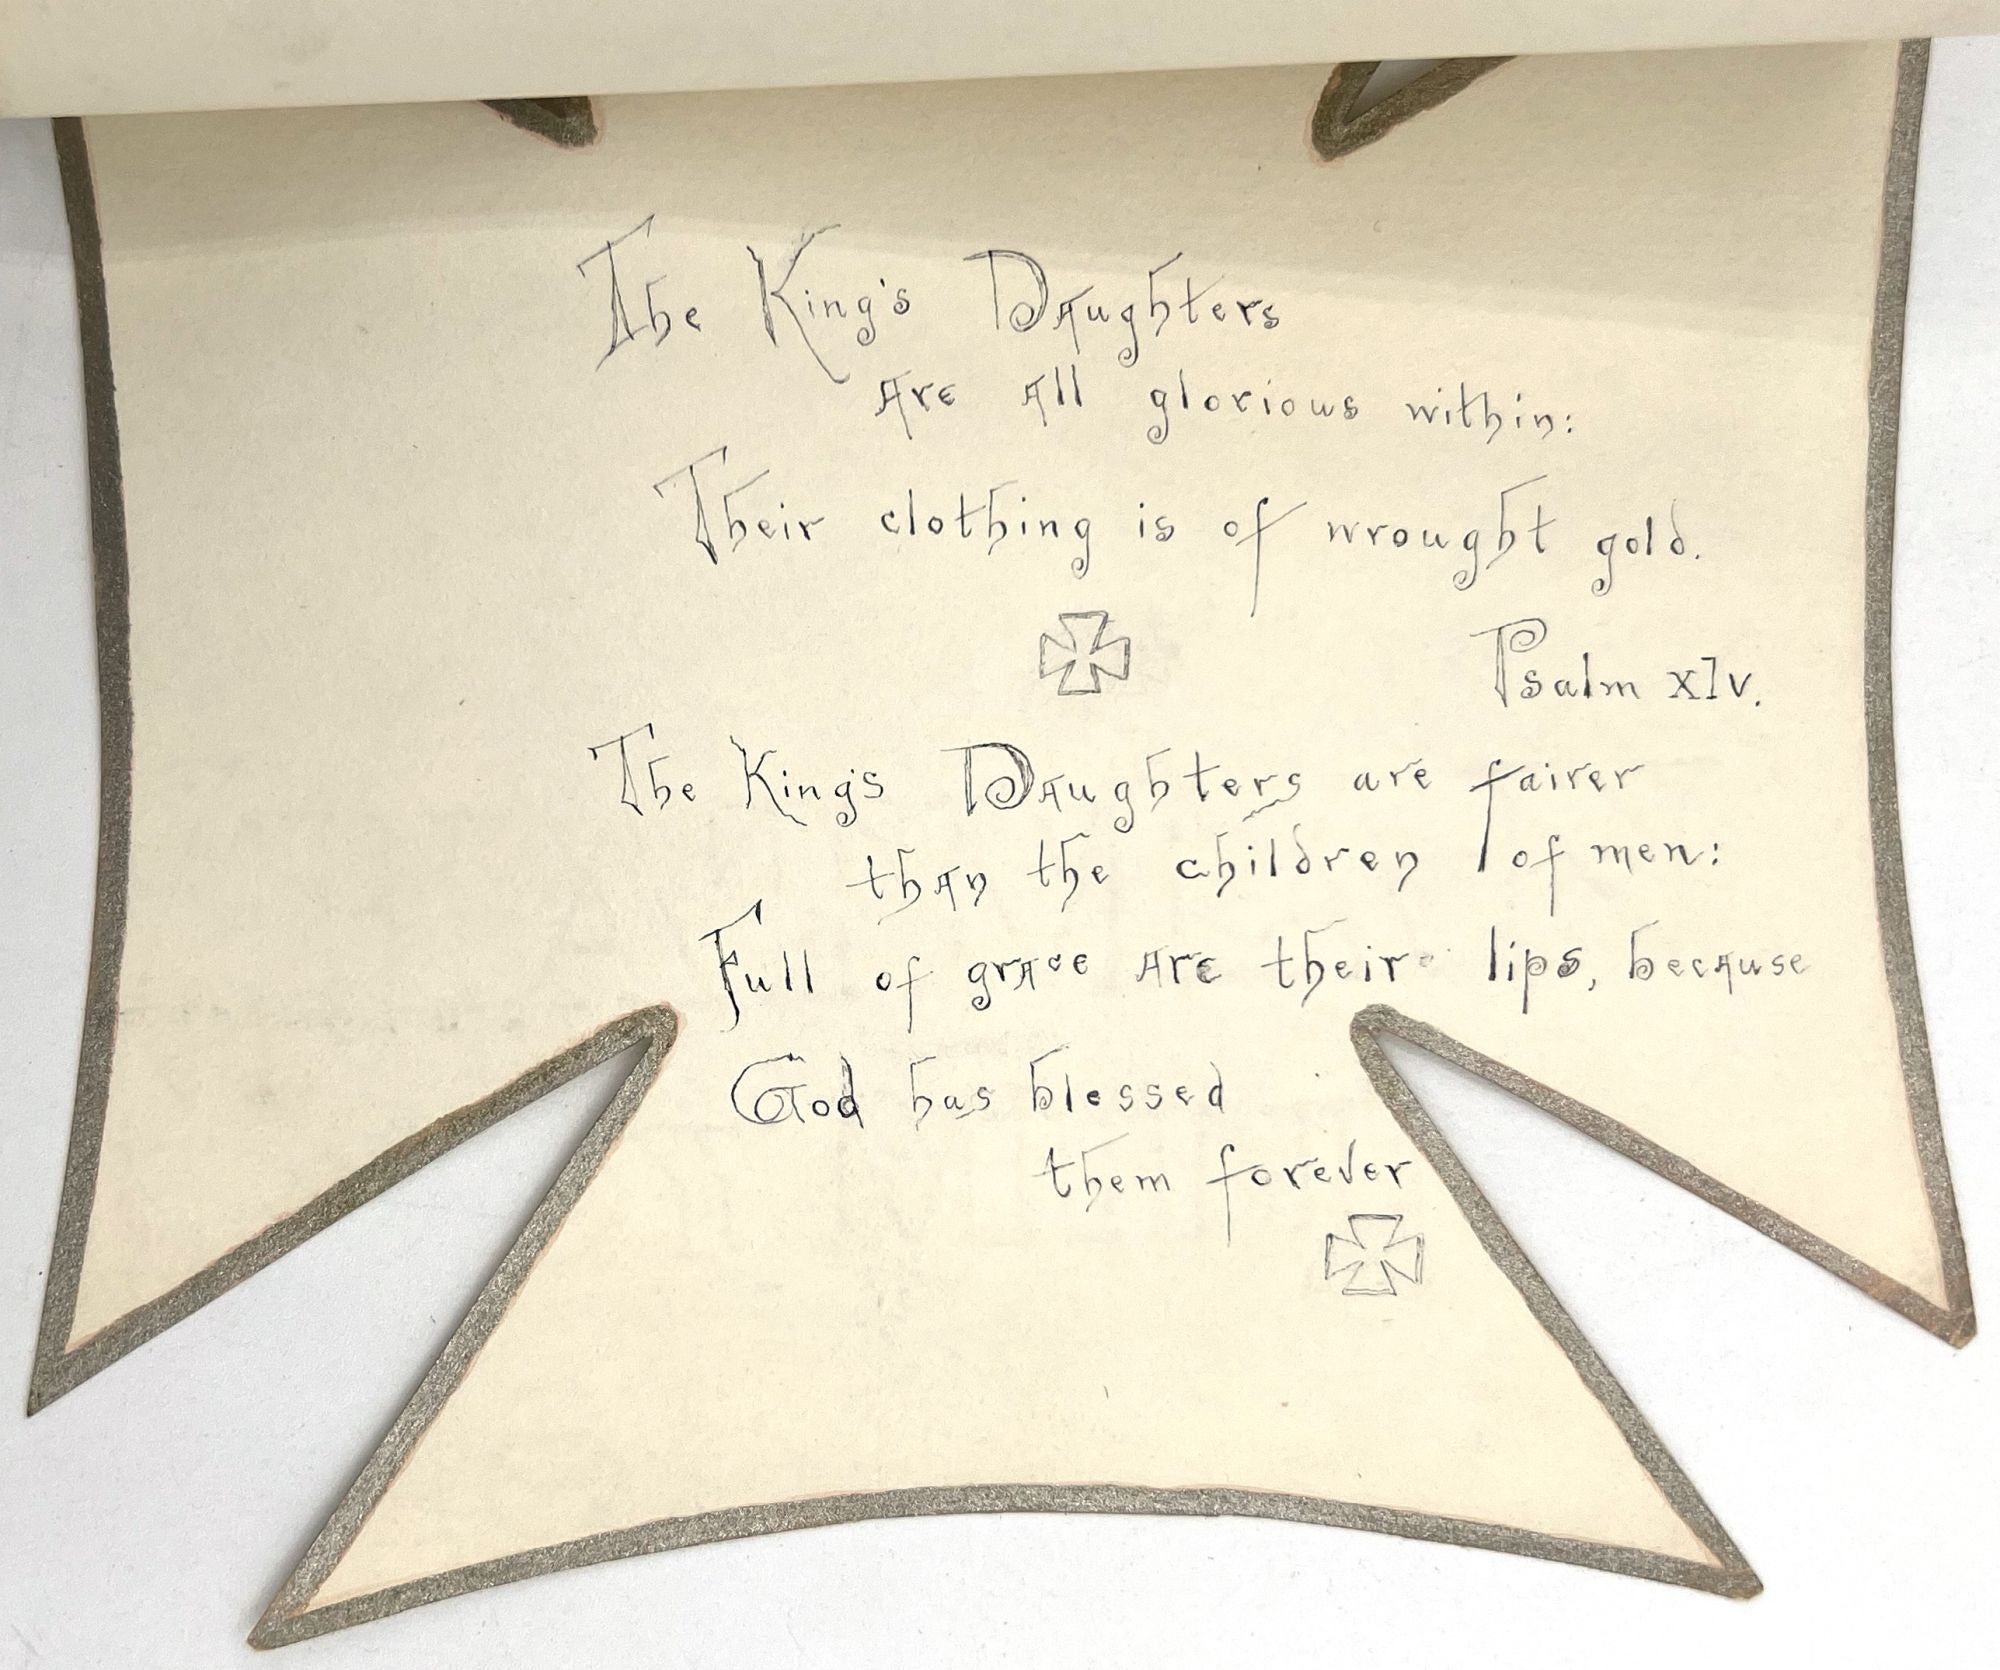 The King's Daughters
are all glorious within:
Their clothing is of wrought gold.
Psalm xlv.
The King's Daughters are fairer
than the children of men:
Full of grace are their lips, because
God has blessed
them forever